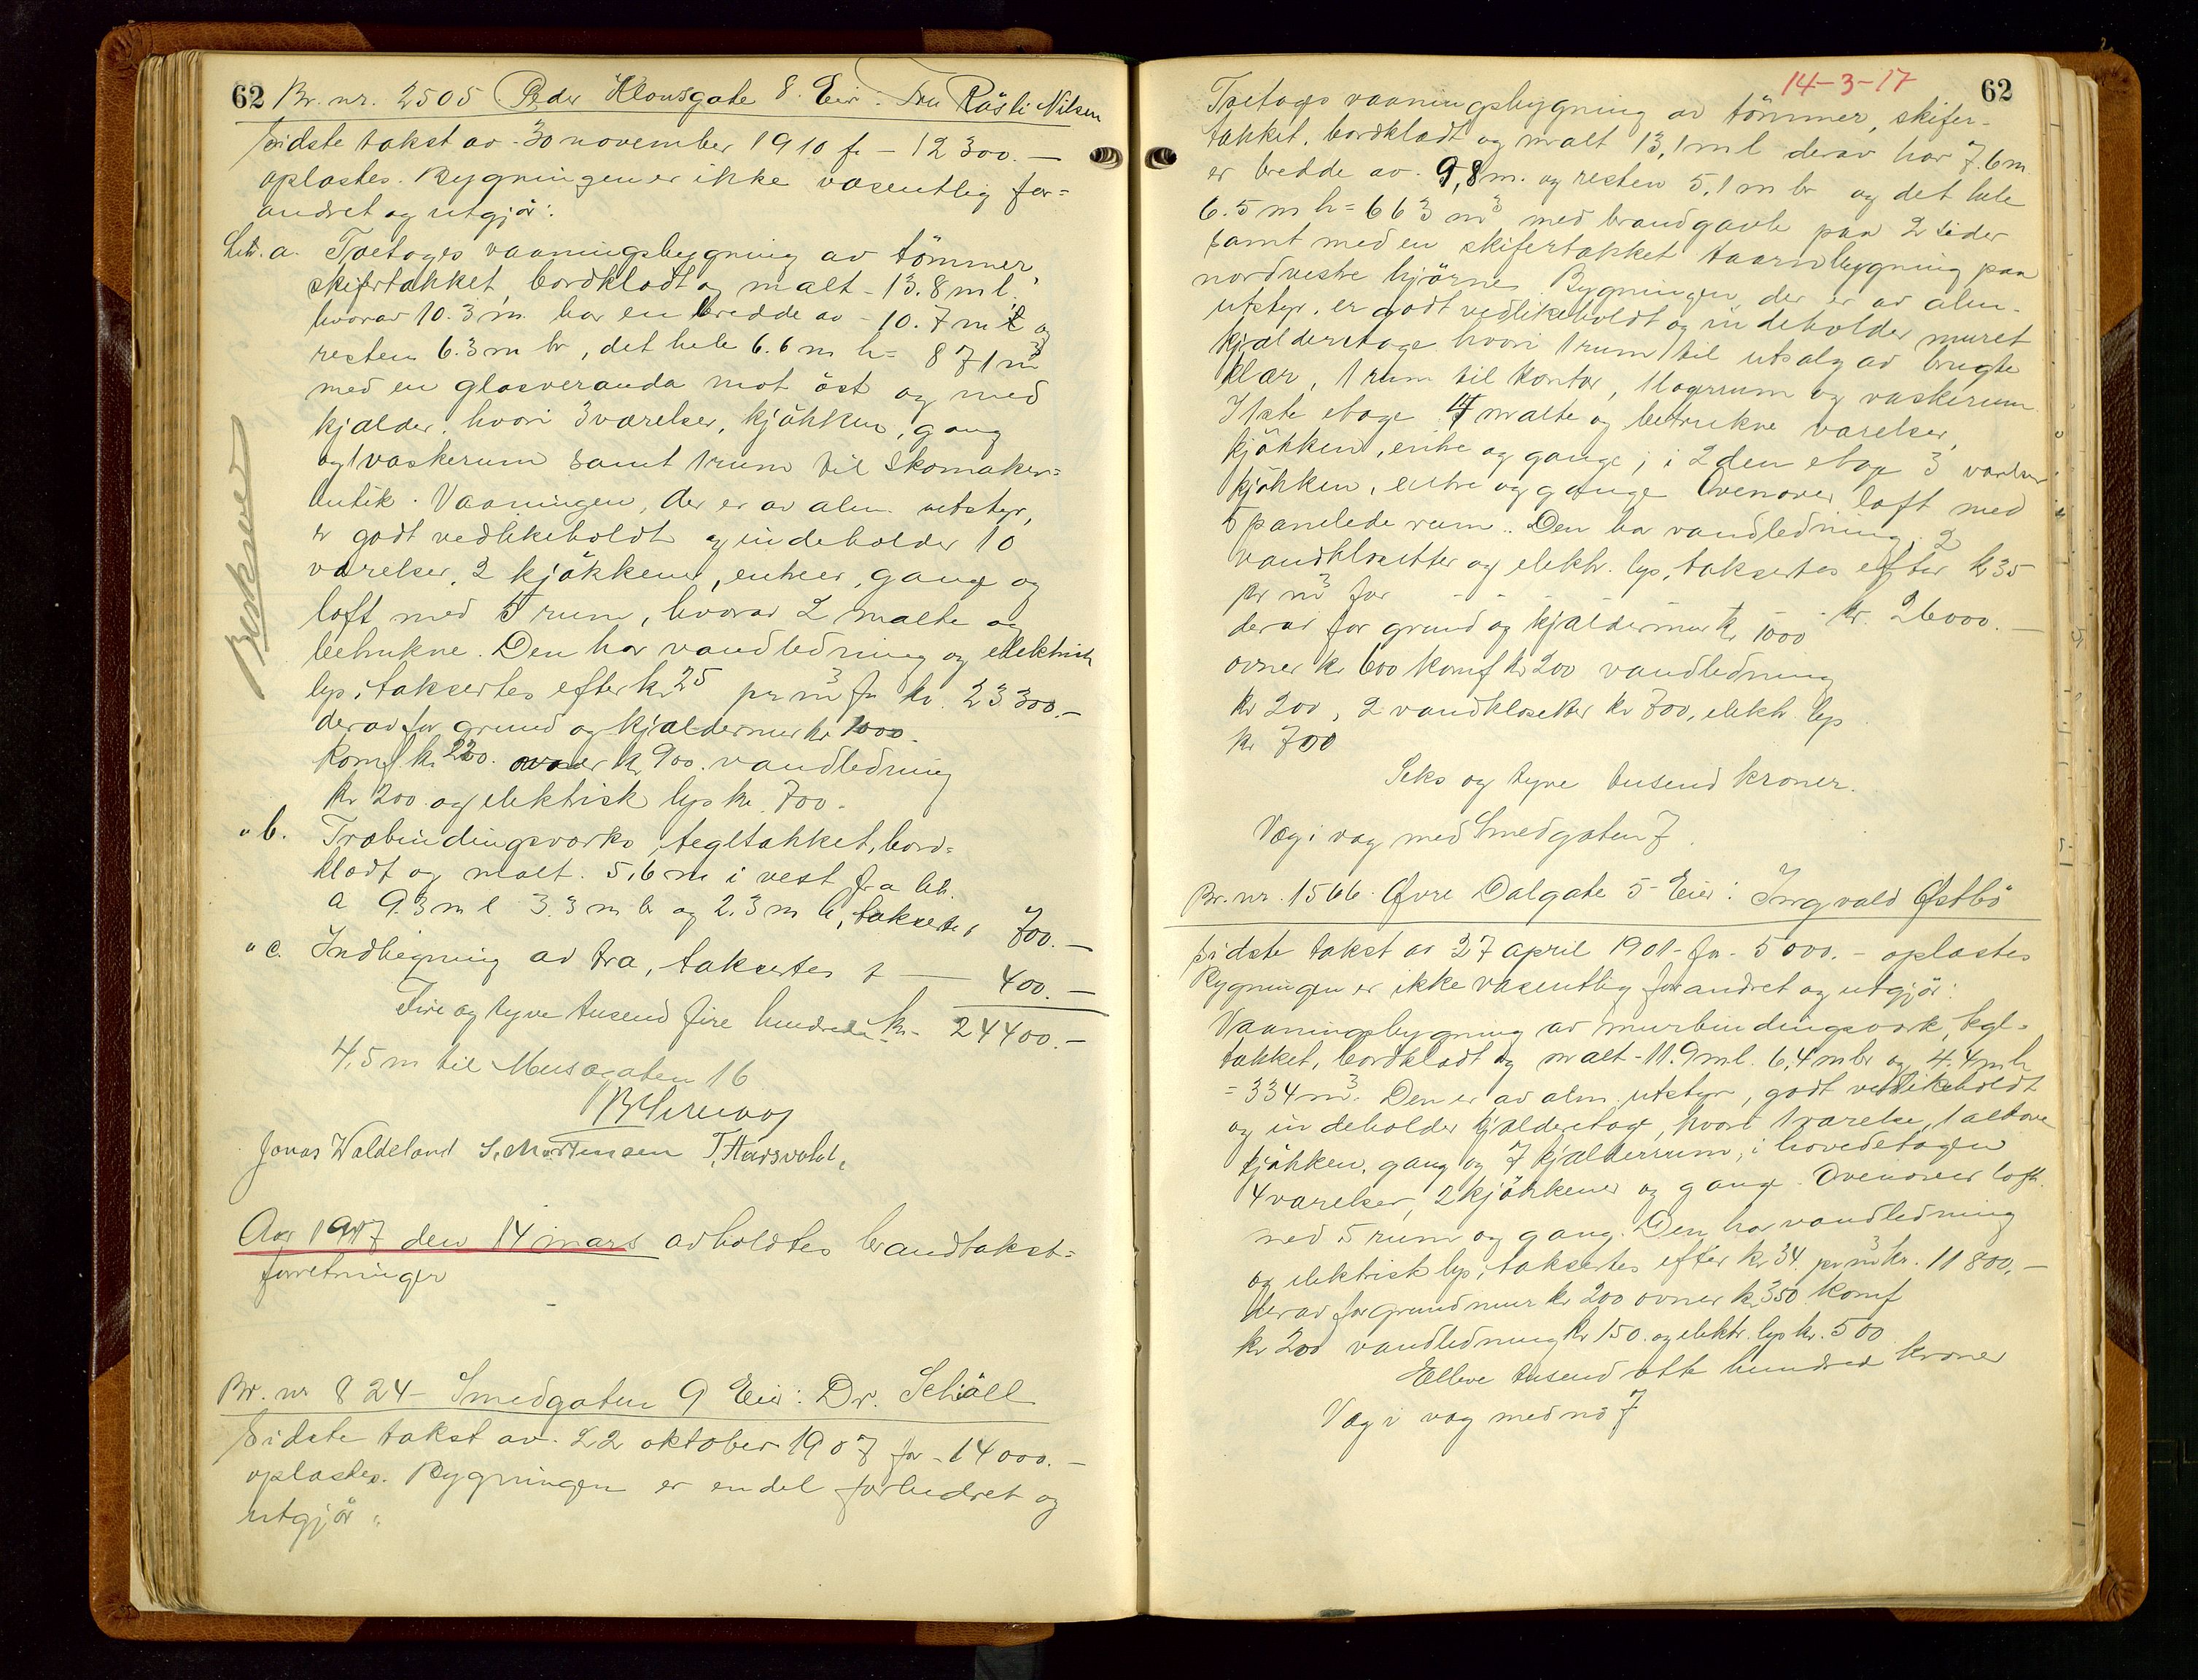 62 Br. nr. 2505 Peder Klousgate 8. Eier. Fru Rásli Nilsen
Sidste takst av 30 november 1910 fr - 12300.-
oplæstes. Bygningen er ikke væsentlig for-
andret og utgjör:
Litr. a. Toetages vaaningsbygning av tömmer,
skifertækket, bordklædt og malt - 13.8 m l.
hvorav 10.3 m har en bredde av - 10.7 m og
resten 6.3 m br, det hele 6.6 m h = 871 m³
med en glasveranda mot öst og med
kjælder, hvori 3 værelser, kjökken, gang
og 1 vaskerum samt 1 rum til skomaker-
butik. Vaaningen, der er av alm. utstyr,
er godt vedlikeholdt og indeholder 10
værelser, 2 kjökkener, entreer, gange og
loft med 5 rum, hvorav 2 malte og
betrukne. Den har vandledning og elektrisk
lys; takseres efter kr 25 pr m³ fr kr. 23300.-
derav for grund og kjældermur kr 1000.
Komf. kr 220. ovner kr 900. vandledning
kr 200 og elektrisk lys kr. 700.
" b. Træbindingsverks, tegltækket, bord-
klædt og malt. 5,6 m i vest fra litr.
a 9.3 m l 3.3 m br og 2.3 m h, takseres 700.-
" c. Indhegning av træ, takseres t — 400.-
Fire og tyve tusend fire hundrede kr. 24400.-
4,5 m til Musægaten 16
Jonas Waldeland S. Mortensen T. Haarsvold.
Beskrevet
Aar 1917 den 14 mars avholdtes brandtakst-
forretninger
Br. nr 824 - Smedgaten 9 Eier: Dr. Schöll
Sidste takst av 22 oktober 1907 for - 14000.-
oplæstes. Bygningen er endel forbedret og
utgjör:
14-3-17 62
Toetages vaaningsbygning av tömmer, skifer-
tækket, bordklædt og malt 13,1 m l derav har 7.6 m
er bredde av 9,8 m. og resten 5,1 m br og det hele
6.5 m h = 663 m³ med brandgavle paa 2 sider
samt med en skifertækket taarnbygning paa
nordvestre hjörne. Bygningen, der er av alm.
utstyr, er godt vedlikeholdt og indeholder muret
kjælderetage hvori 1 rum til utsalg av brugte
klær, 1 rum til kontor, 1 lagerrum og vaskerum.
I 1ste etage 4 malte og betrukne værelser,
kjökken, entre og gange; i 2den etage 3 værelser
kjökken, entre og gange Ovenover loft med
5 panelede rum. Den har vandledning, 2
vandklosetter og elektr. lys, takseres efter kr 35
pr m³ for - - - - - - kr. 26000.-
derav for grund og kjældermur kr 1000
ovner kr 600 komf kr 200 vandledning
kr 200, 2 vandklosetter kr 700, elektr lys
kr 700
Seks og tyve tusend kroner.
Væg i væg med Smedgaten 7.
Br. nr. 1566. Øvre Dalgate 5 - Eier: Ingvald Østbö
Sidste takst av 27 april 1901 - for - 5000.- oplæstes
Bygningen er ikke væsentlig forandret og utgjör:
Vaaningsbygning av murbindingsverk, tegl-
tækket, bordklædt og malt - 11.9 m l. 6,4 m br og 4.4 m h
= 334 m³. Den er av alm. utstyr, godt vedlikeholdt
og indeholder kjælderetage, hvori 1 værelse, 1 alkove
kjökken, gang og 7 kjælderrum; i hovedetagen
4 værelser, 2 kjökkener og gang. Ovenover loft
med 5 rum og gang. Den har vandledning
og elektrisk lys; takseres efter kr 34. pr m³ kr. 11800.-
derav for grundmur kr 200 ovner kr 350 komf
kr 200 vandledning kr 150. og elektr. lys kr. 500
Elleve tusend otte hundrede kroner
Væg i væg med no 7